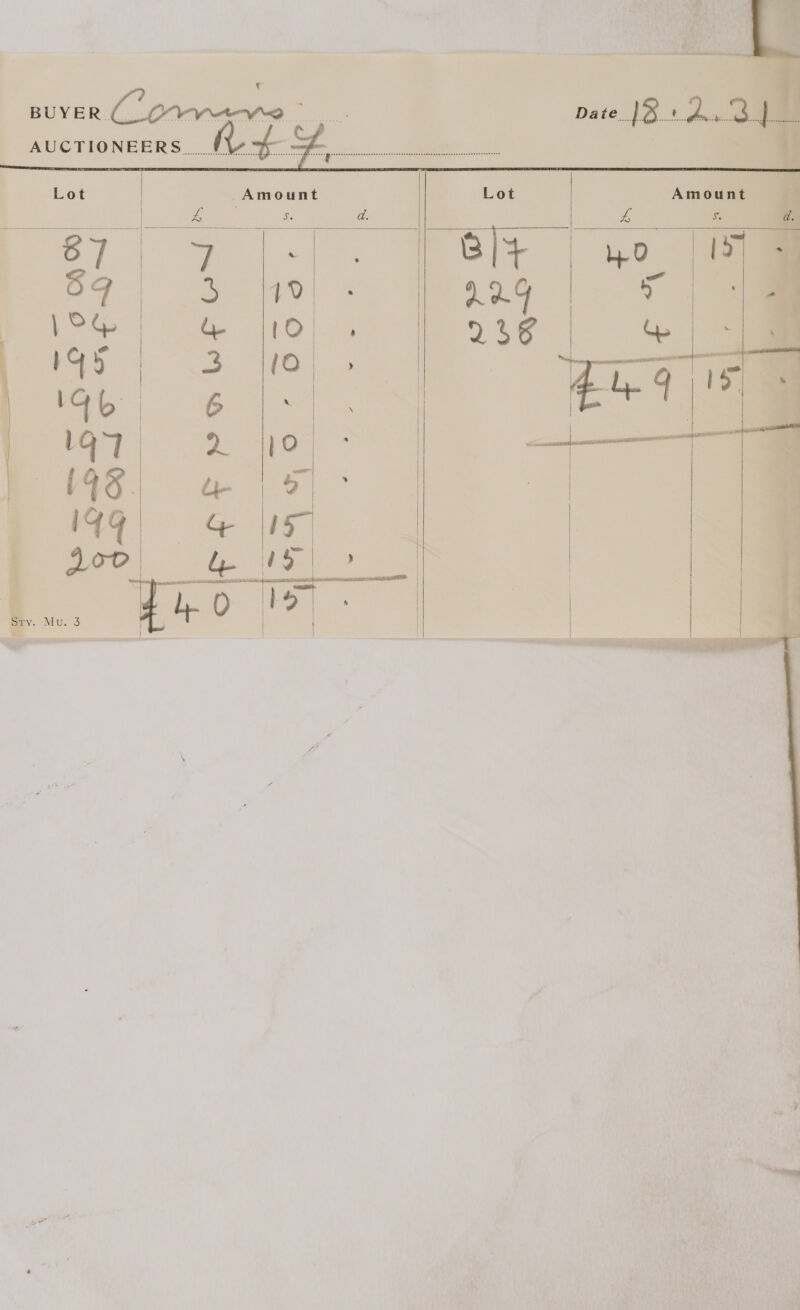 BUYER
Date 18.2.31
AUCTIONEERS R & F
Lot Amount Lot Amount
£ s. d. £ s. d.
87 7 - .
89 3 10 -
104 4 10 ,
195 3 10 ,
196 6 - -
197 2 10 -
198 4 5 -
199 4 15
200 4 15 ,
£40 15 .
B/F 40 15 -
229 5 - -
238 4 - -
£49 15 -
Srv. Mu. 3